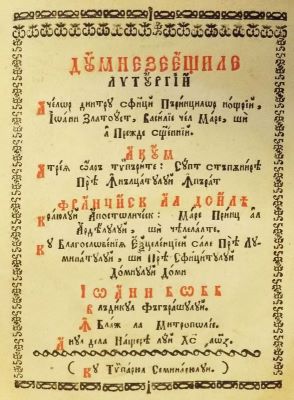 ДꙊМНЕЗЕЕЩИЛЕ
ЛꙊТꙊРГІЙ
А челѡр динтрꙋ сфинци Пѫринцилѡр нощрій,
Іѡанн Златоꙋст, Василіе чел Маре, ши
а Прежде сщенїей
АКꙊМ
А треа ѡарѫ типѫрите: Сꙋпт стѫпѫниреа
Прѣ Ꙟнѫлцатꙋлꙋй Ꙟпѫрат
ФРАНЧИСК АЛ ДОЙЛѢ
Краюлꙋй Апостолическ: Маре Принц ал
Ардѣлꙋлꙋй, ши челелалте.
Кꙋ Благословенїа Еѯцеленцїей сале Прѣ Лꙋ-
минатꙋлꙋй, ши Прѣ Сфинцитꙋлꙋй
Домнꙋлꙋй Домн
ІѠАНН БОББ
Влѫдикꙋл Фѫгѫрашꙋлꙋй.
Ꙟ Блаж ла Митрополїе.
Анꙋл дела Нащере лꙋй Хс҃
(Кꙋ Типарюл Семинарюлꙋй.)